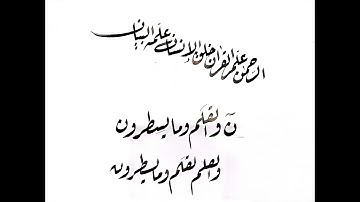 الرحمن علم القرآن خلق الإنسان علمه البيان
ن والقلم وما يسطرون
والقلم وما يسطرون